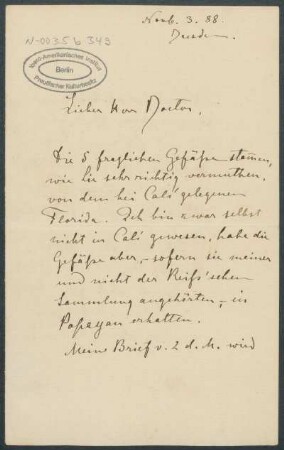 Novb. 3. 88.
Dresden.
N-0035 b 343
Ibero-Amerikanisches Institut
Berlin
Preußischer Kulturbesitz
Lieber Herr Doctor,
Die 5 fraglichen Gefäße stammen,
wie Sie sehr richtig vermuthen,
von dem bei Cali gelegenen
Florida. Ich bin zwar selbst
nicht in Cali gewesen, habe die
Gefäße aber, – sofern sie meiner
und nicht der Reiß'schen
Sammlung angehörten, – in
Popayan erhalten.
Mein Brief v. 2 d. M. wird